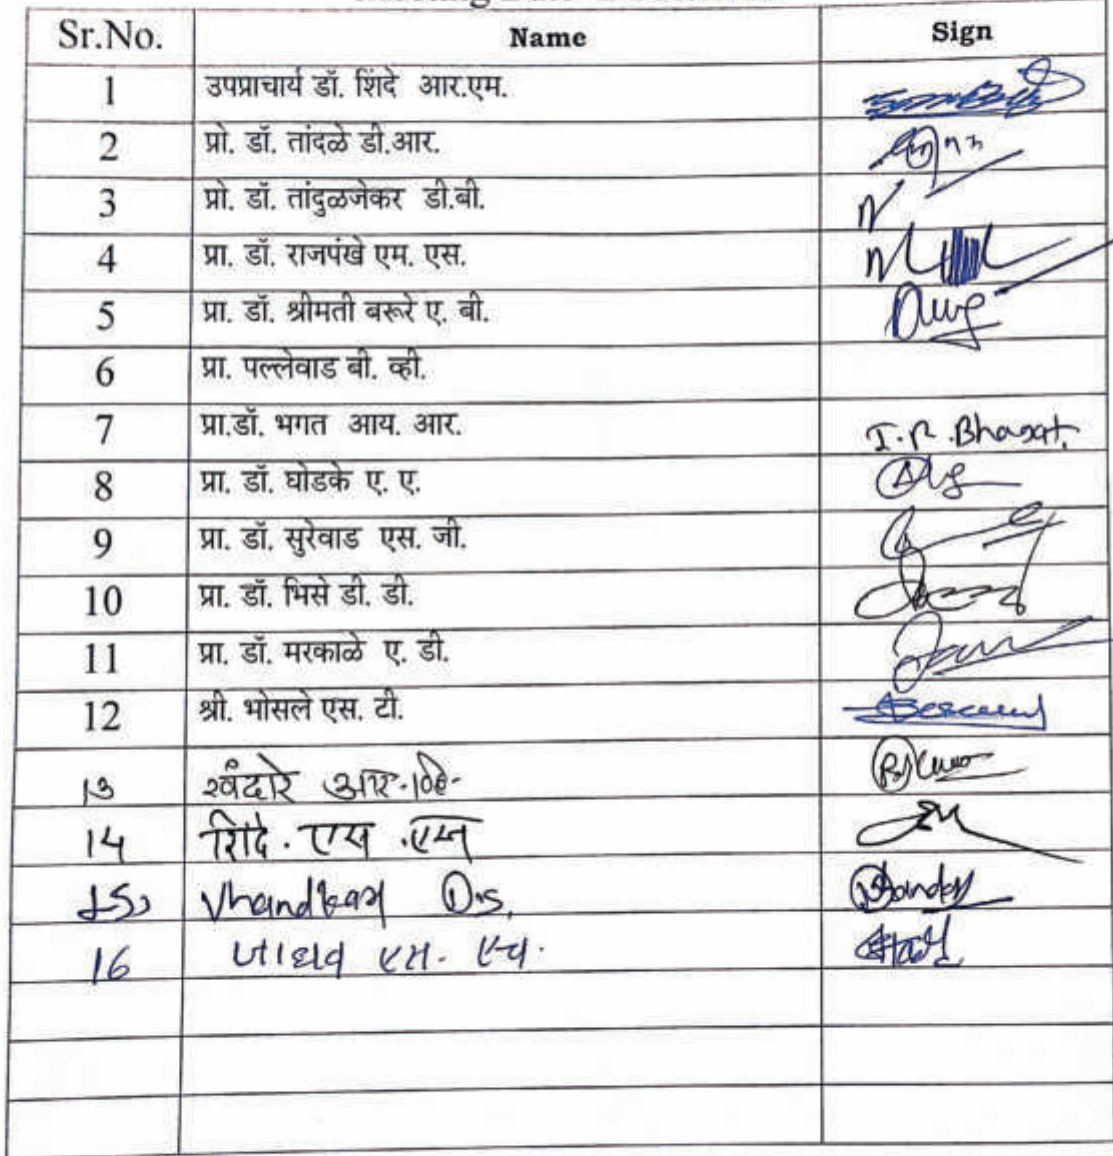 Sr.No. Name Sign
1 उपप्राचार्य डॉ. शिंदे आर.एम.
2 प्रो. डॉ. तांदळे डी.आर.
3 प्रो. डॉ. तांदुळजेकर डी.बी.
4 प्रा. डॉ. राजपंखे एम. एस.
5 प्रा. डॉ. श्रीमती बरूरे ए. बी.
6 प्रा. पल्लेवाड बी. व्ही.
7 प्रा.डॉ. भगत आय. आर. I.R.Bhagat.
8 प्रा. डॉ. घोडके ए. ए.
9 प्रा. डॉ. सुरेवाड एस. जी.
10 प्रा. डॉ. भिसे डी. डी.
11 प्रा. डॉ. मरकाळे ए. डी.
12 श्री. भोसले एस. टी.
13 खंदारे आर.
14 शिंदे. एस .एन
15 D.S.
16 जाधव एम. एच.